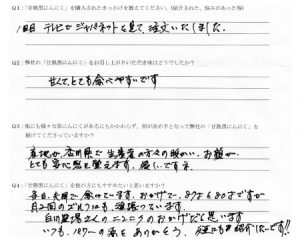 Q1:「甘熟黒にんにく」を購入されたきっかけを教えてください。(紹介された、悩みがあった等)
1回目 テレビでジャパネットを見て、注文いたしました。
Q2:弊社の「甘熟黒にんにく」をお召し上がりいただき味はどうでしたか?
甘くて、とても食べやすいです
Q3:他にも様々な黒にんにくがあるにもかかわらず、何が決め手となって弊社の「甘熟黒にんにく」を
続けてくださっていますか?
産地が香川県で生産者の方々の暖かい、お顔が
とても安心感を覚えます。嬉しいですネ
Q4:「甘熟黒にんにく」を他の方にもすすめたいと思いますか?
毎日、夫婦で食べています。おかげで、87才と80才ですが
月2回のゴルフにも頑張っています。
ニンニクのおかげだと思います
いつも、パワーの源をありがとう。